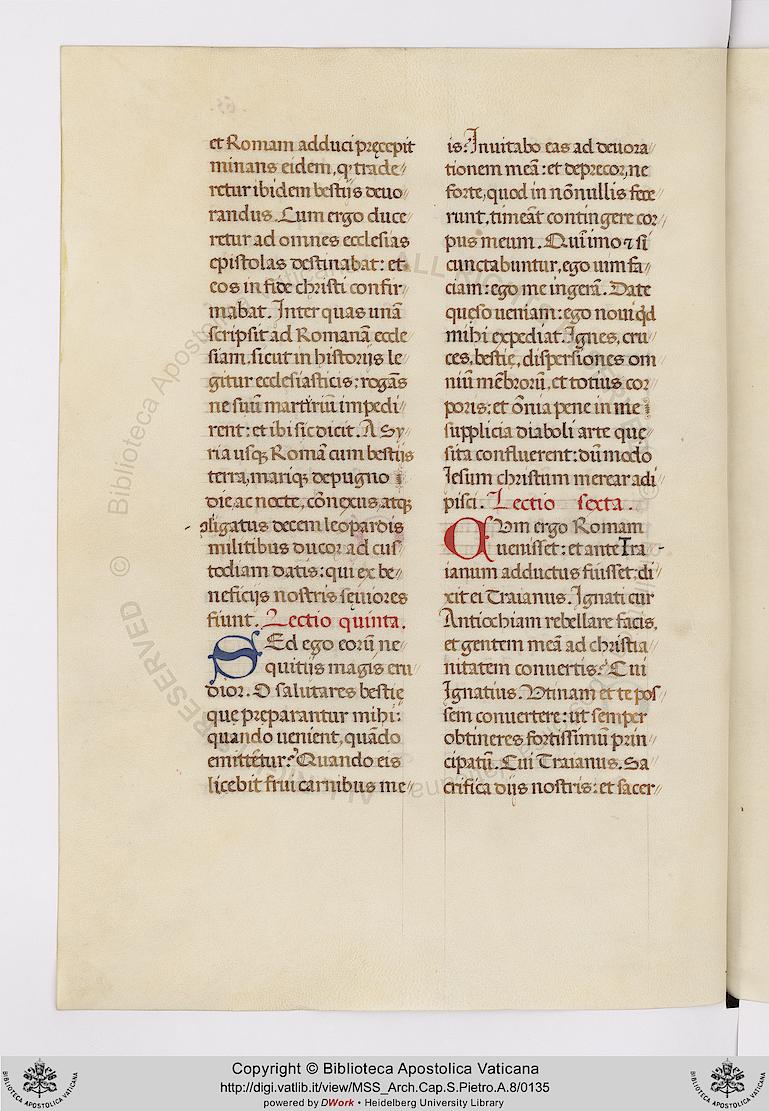 et Romam adduci pręcepit
minans eidem, ꝙ trade//
retur ibidem bestijs deuo//
randus. Cum ergo duce//
retur ad omnes ecclesias
epistolas destinabat: et
eos in fide christi confir//
mabat. Inter quas unā
scripsit ad Romanā eccle
siam. sicut in historijs le//
gitur ecclesiasticis: rogās
ne suū martiriū impedi//
rent: et ibi sic dicit. A Sy//
ria usq; Romā cum bestijs
terra, mariq; depugno
die, ac nocte, cōnexus atq;
oligatus decem leopardis
militibus ducor ad cus//
todiam datis: qui ex be//
neficijs nostris sęuiores
fiunt. Lectio quinta.
SEd ego eorū ne//
quitijs magis eru//
dior. O salutares bestię
que pręparantur mihi:
quando uenient, quādo
emittētur? Quando eis
licebit frui carnibus me//
is? Inuitabo eas ad deuora//
tionem meā: et deprecor, ne
forte, quod in nōnullis fece//
runt, timeāt contingere cor//
pus meum. Quīimo ⁊ si
cunctabuntur, ego uim fa//
ciam: ego me ingerā. Date
quęso ueniam: ego noui qd̄
mihi expediat. Ignes, cru//
ces, bestię, dispersiones om//
niū mēbrorū, et totius cor//
poris: et ōnia pene in me
supplicia diaboli arte quę//
sita confluerent: dūmodo
Iesum christum merear adi//
pisci. Lectio sexta.
CVm ergo Romam
uenisset: et ante Tra -
ianum adductus fuisset: di//
xit ei Traianus. Ignati cur
Antiochiam rebellare facis,
et gentem meā ad christia//
nitatem conuertis? Cui
Ignatius. Vtinam et te pos//
sem conuertere: ut semper
obtineres fortissimū prin//
cipatū. Cui Traianus. Sa//
crifica dijs nostris: et sacer//
Copyright © Biblioteca Apostolica Vaticana
http://digi.vatlib.it/view/MSS_Arch.Cap.S.Pietro.A.8/0135
powered by DWork • Heidelberg University Library